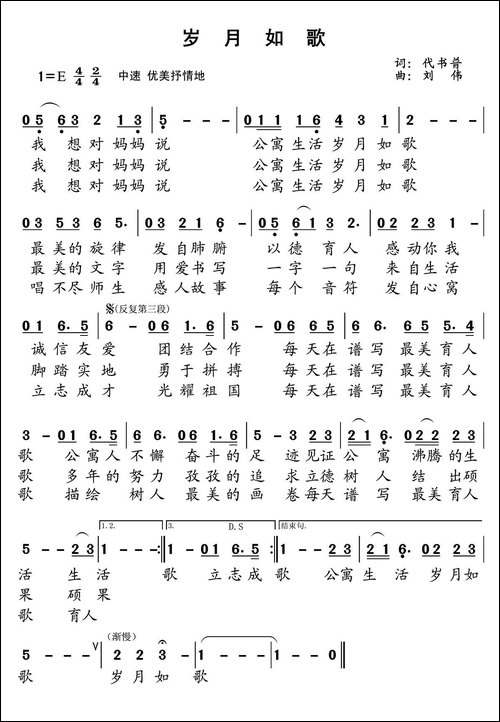 岁 月 如 歌
词：代书普
1=E 4/4 2/4 中速 优美抒情地
曲：刘 伟
0 5 · 6 3 2 1 3 | 5 - - - | 0 1 1 1 6 4 3 1 | 2 - - - |
我 想 对 妈妈 说 公寓 生活 岁 月 如 歌
我 想 对 妈妈 说 公寓 生活 岁 月 如 歌
我 想 对 妈妈 说 公寓 生活 岁 月 如 歌
0 3 5 3 6 5. | 0 3 2 1 6 | 0 6 1 3 2. | 0 2 2 3 1 |
最 美 的 旋 律 发 自 肺 腑 以 德 育 人 感 动 你 我
最 美 的 文 字 用 爱 书 写 一 字 一 句 来 自 生 活
唱 不 尽 师 生 感 人 故 事 每 个 音 符 发 自 心 窝
𝄋(反复第三段)
0 1 6. 5 | 6 - 0 6 5 6 | 3 - 0 2 1 2 | 3. 5 0 5 5. 4 |
诚 信 友 爱 团 结 合 作 每 天 在 谱 写 最 美 育 人
脚 踏 实 地 勇 于 拼 搏 每 天 在 谱 写 最 美 育 人
立 志 成 才 光 耀 祖 国 每 天 在 谱 写 最 美 育 人
3 - 0 1 6. 5 | 5 - 0 6 1. 6 | 6 - 0 1 2 3 | 6. 0 2 2 2 |
歌 公 寓 人 不 懈 奋 斗 的 足 迹 见 证 公 寓 沸 腾 的 生
歌 多 年 的 努 力 孜 孜 的 追 求 立 德 树 人 结 出 硕
歌 描 绘 树 人 最 美 的 画 卷 每 天 谱 写 最 美 育 人
1. 2. 3. D.S 结束句.
5 - - 2 3 | 1 - - :| 1 - 0 1 6. 5 :| 1 - 2 3 2 1 | 6. 0 2 2 3 |
活 生 活 歌 立 志 成 歌 公 寓 生 活 岁 月 如
果 硕 果
歌 育 人
(渐慢)
5 - - - V | 2 2 3 - | 1 - - - | 1 - - 0 ‖
歌 岁 月 如 歌